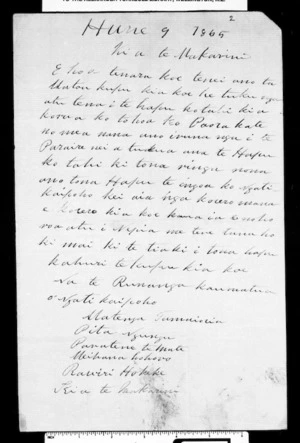 2
Hune 9 1865
Ki a te Makarini
E hoa tenara koe tenei ano ta
Matou kupu kia koe he tuku
atu tena i te hapu kotahi ki a
korua ko tohoa Ko Paora kate
no mea nana ano i runga i te
Paraire nei a tukua ana te Hapu
ko tahi ki tona ringa nona
ano tona Hapu te ingoa ko ngati
kaipoho hei aia nga korero mana
e korero kia koe kauaia e noho
roa atu i Nepia me tere tana ho
ki mai ki te tiaki i tona hapu
kahuri te kupu kia koe
na te Runanga kaumatua
o ngati kaipoho
Pita
Paratene te Mate
Mihana
Rawiri Hokeke
Kia te Makarini